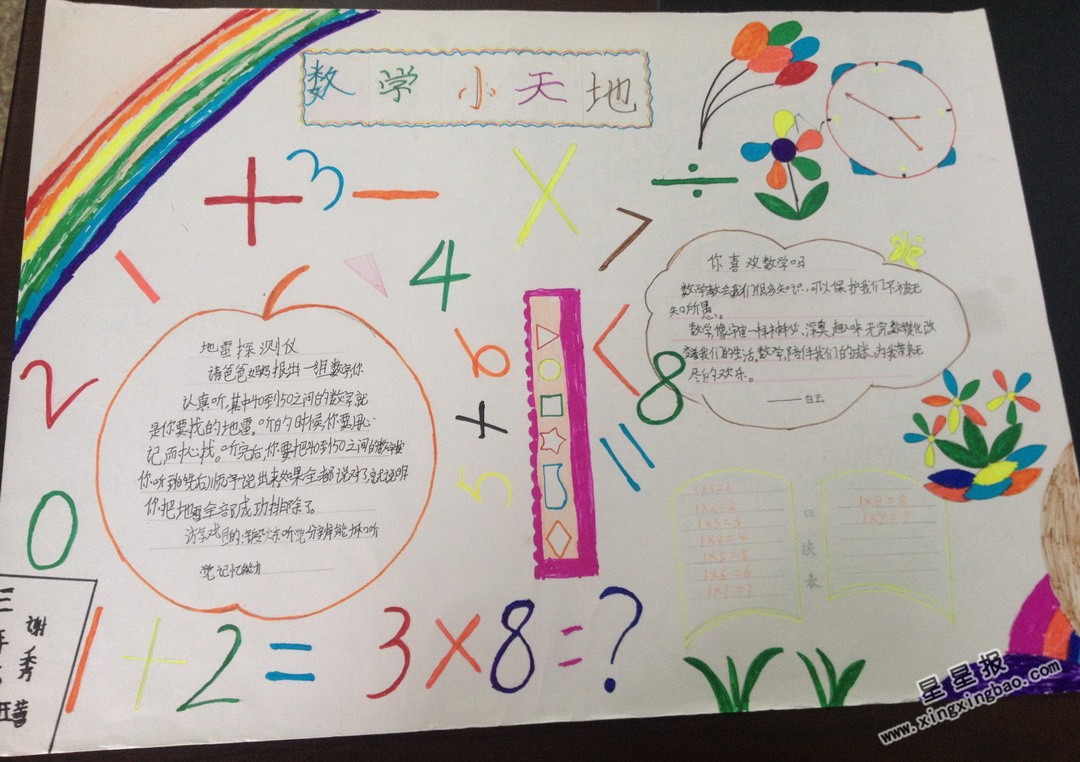 数学小天地
+ 3 - × ÷
1
4
7
2
6
<
8
+
5
=
0
地雷探测仪
请爸爸妈妈报出一组数字,你
认真听,其中40到50之间的数字就
是你要找的地雷。听的时候,你要用心
记,而找。听完后,你要把40到50之间的数字按
你听到的先后顺序说出来如果全部说对了,就说明
你把地雷全部成功排除了。
游戏目的:锻炼听觉分辨能力和听
觉记忆能力
你喜欢数学吗
数学教会我们很多知识,可以保护我们不被无
知所愚。
数学,像宇宙一样神秘,深奥,趣味无穷,数学改
变着我们的生活,数学,陪伴我们的成长,为我带来无
尽的欢乐。
——白云
1×1=1
1×2=2
1×3=3
1×4=4
1×5=5
1×6=6
1×7=7
口诀表
1×8=8
1×9=
三年
班
谢秀
1+2= 3×8=?
星星报
www.xingxingbao.com